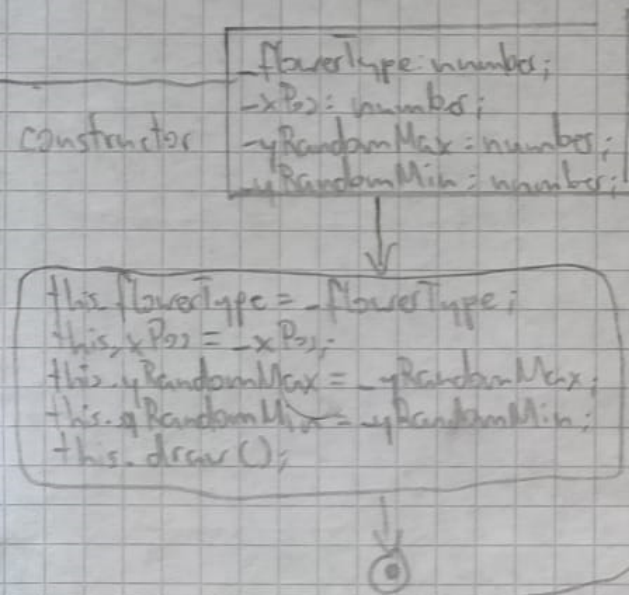 constructor
_flowerType: number;
_xPos: number;
_yRandomMax: number;
_yRandomMin: number;
this.flowerType = _flowerType;
this.xPos = _xPos;
this.yRandomMax = _yRandomMax;
this.yRandomMin = _yRandomMin;
this.draw();